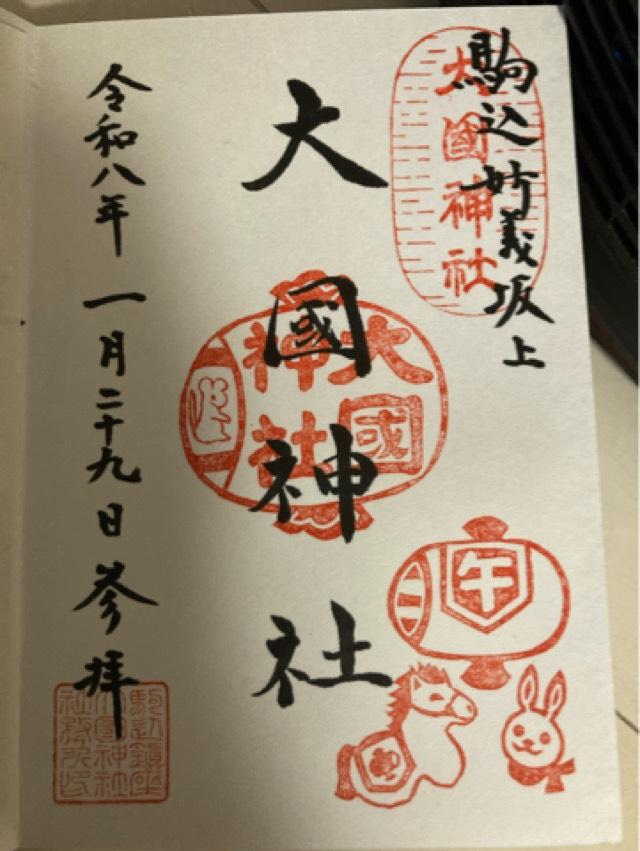 駒込妙義坂上
大國神社
大國神社
大國神社
午
令和八年 一月二十九日 参拝
駒込鎮座
大國神社
社務所印